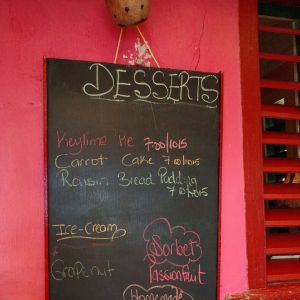 DESSERTS
Keylime Pie 7.00/10.15
Carrot Cake 7.00/10.15
Raisin Bread Pudding
7.00/10.15
Ice-Cream
Sorbet
GrapeNut
Passionfruit
Homemade